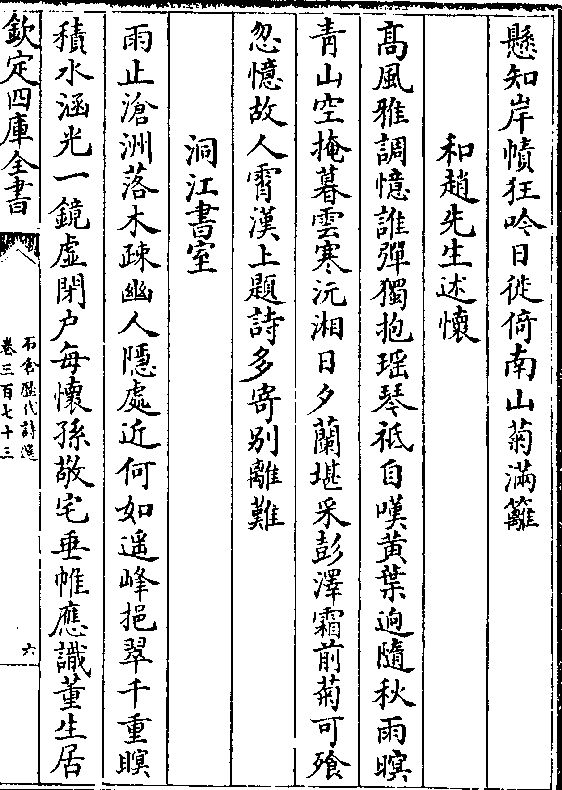 懸知岸幘狂吟日徙倚南山菊滿籬
和趙先生述懷
高風雅調憶誰彈獨抱瑶琴祗自嘆黄葉逈隨秋雨暝
青山空掩暮雲寒沅湘日夕蘭堪采彭澤霜前菊可飱
忽憶故人霄漢上題詩多寄别離難
洞江書室
雨止滄洲落木疎幽人隱處近何如遥峰挹翠千重暝
積水涵光一鏡虚閉户每懷孫敬宅垂帷應識董生居
欽定四庫全書
石倉歷代詩選
卷三百七十三
六